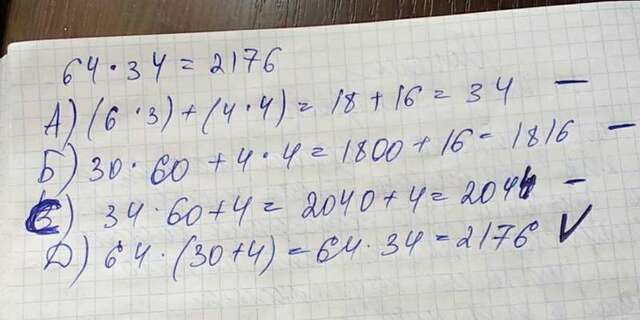 64 · 34 = 2176
А) (6 · 3) + (4 · 4) = 18 + 16 = 34 —
Б) 30 · 60 + 4 · 4 = 1800 + 16 = 1816 —
С) 34 · 60 + 4 = 2040 + 4 = 2044 —
Д) 64 · (30 + 4) = 64 · 34 = 2176 ✓